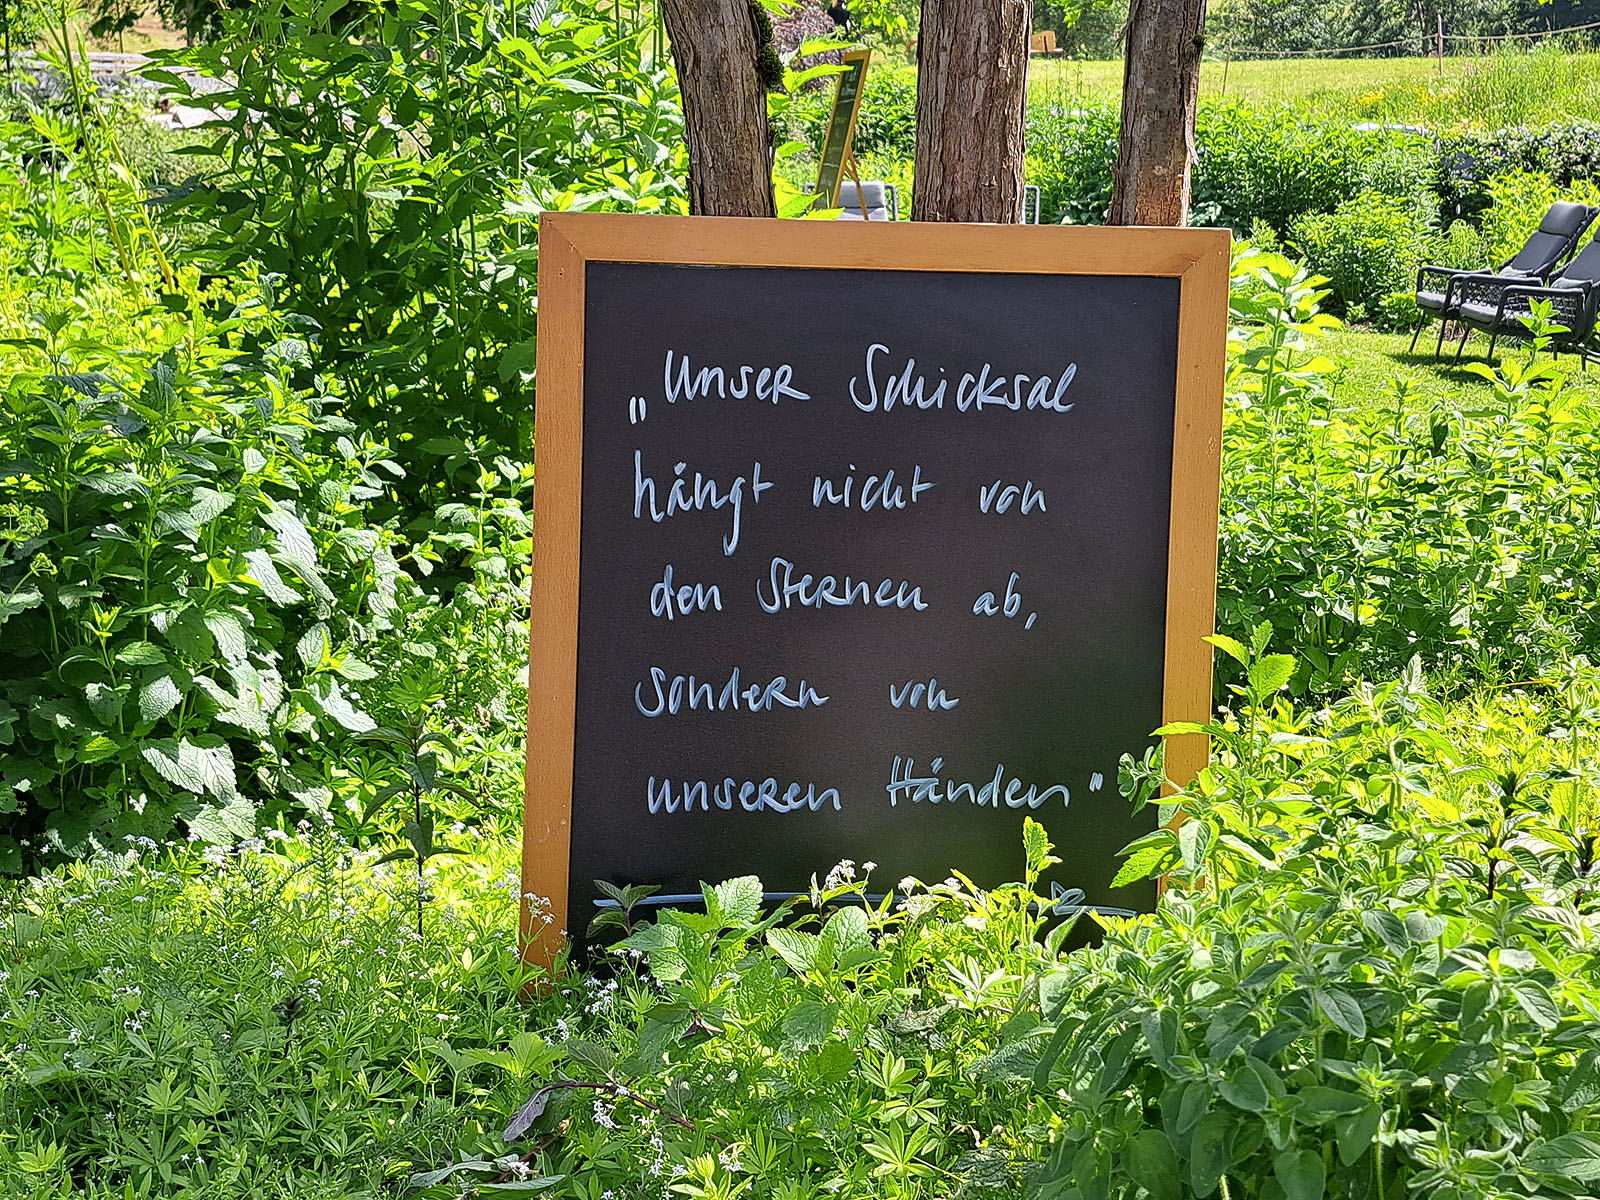 „Unser Schicksal
hängt nicht von
den Sternen ab,
sondern von
unseren Händen"